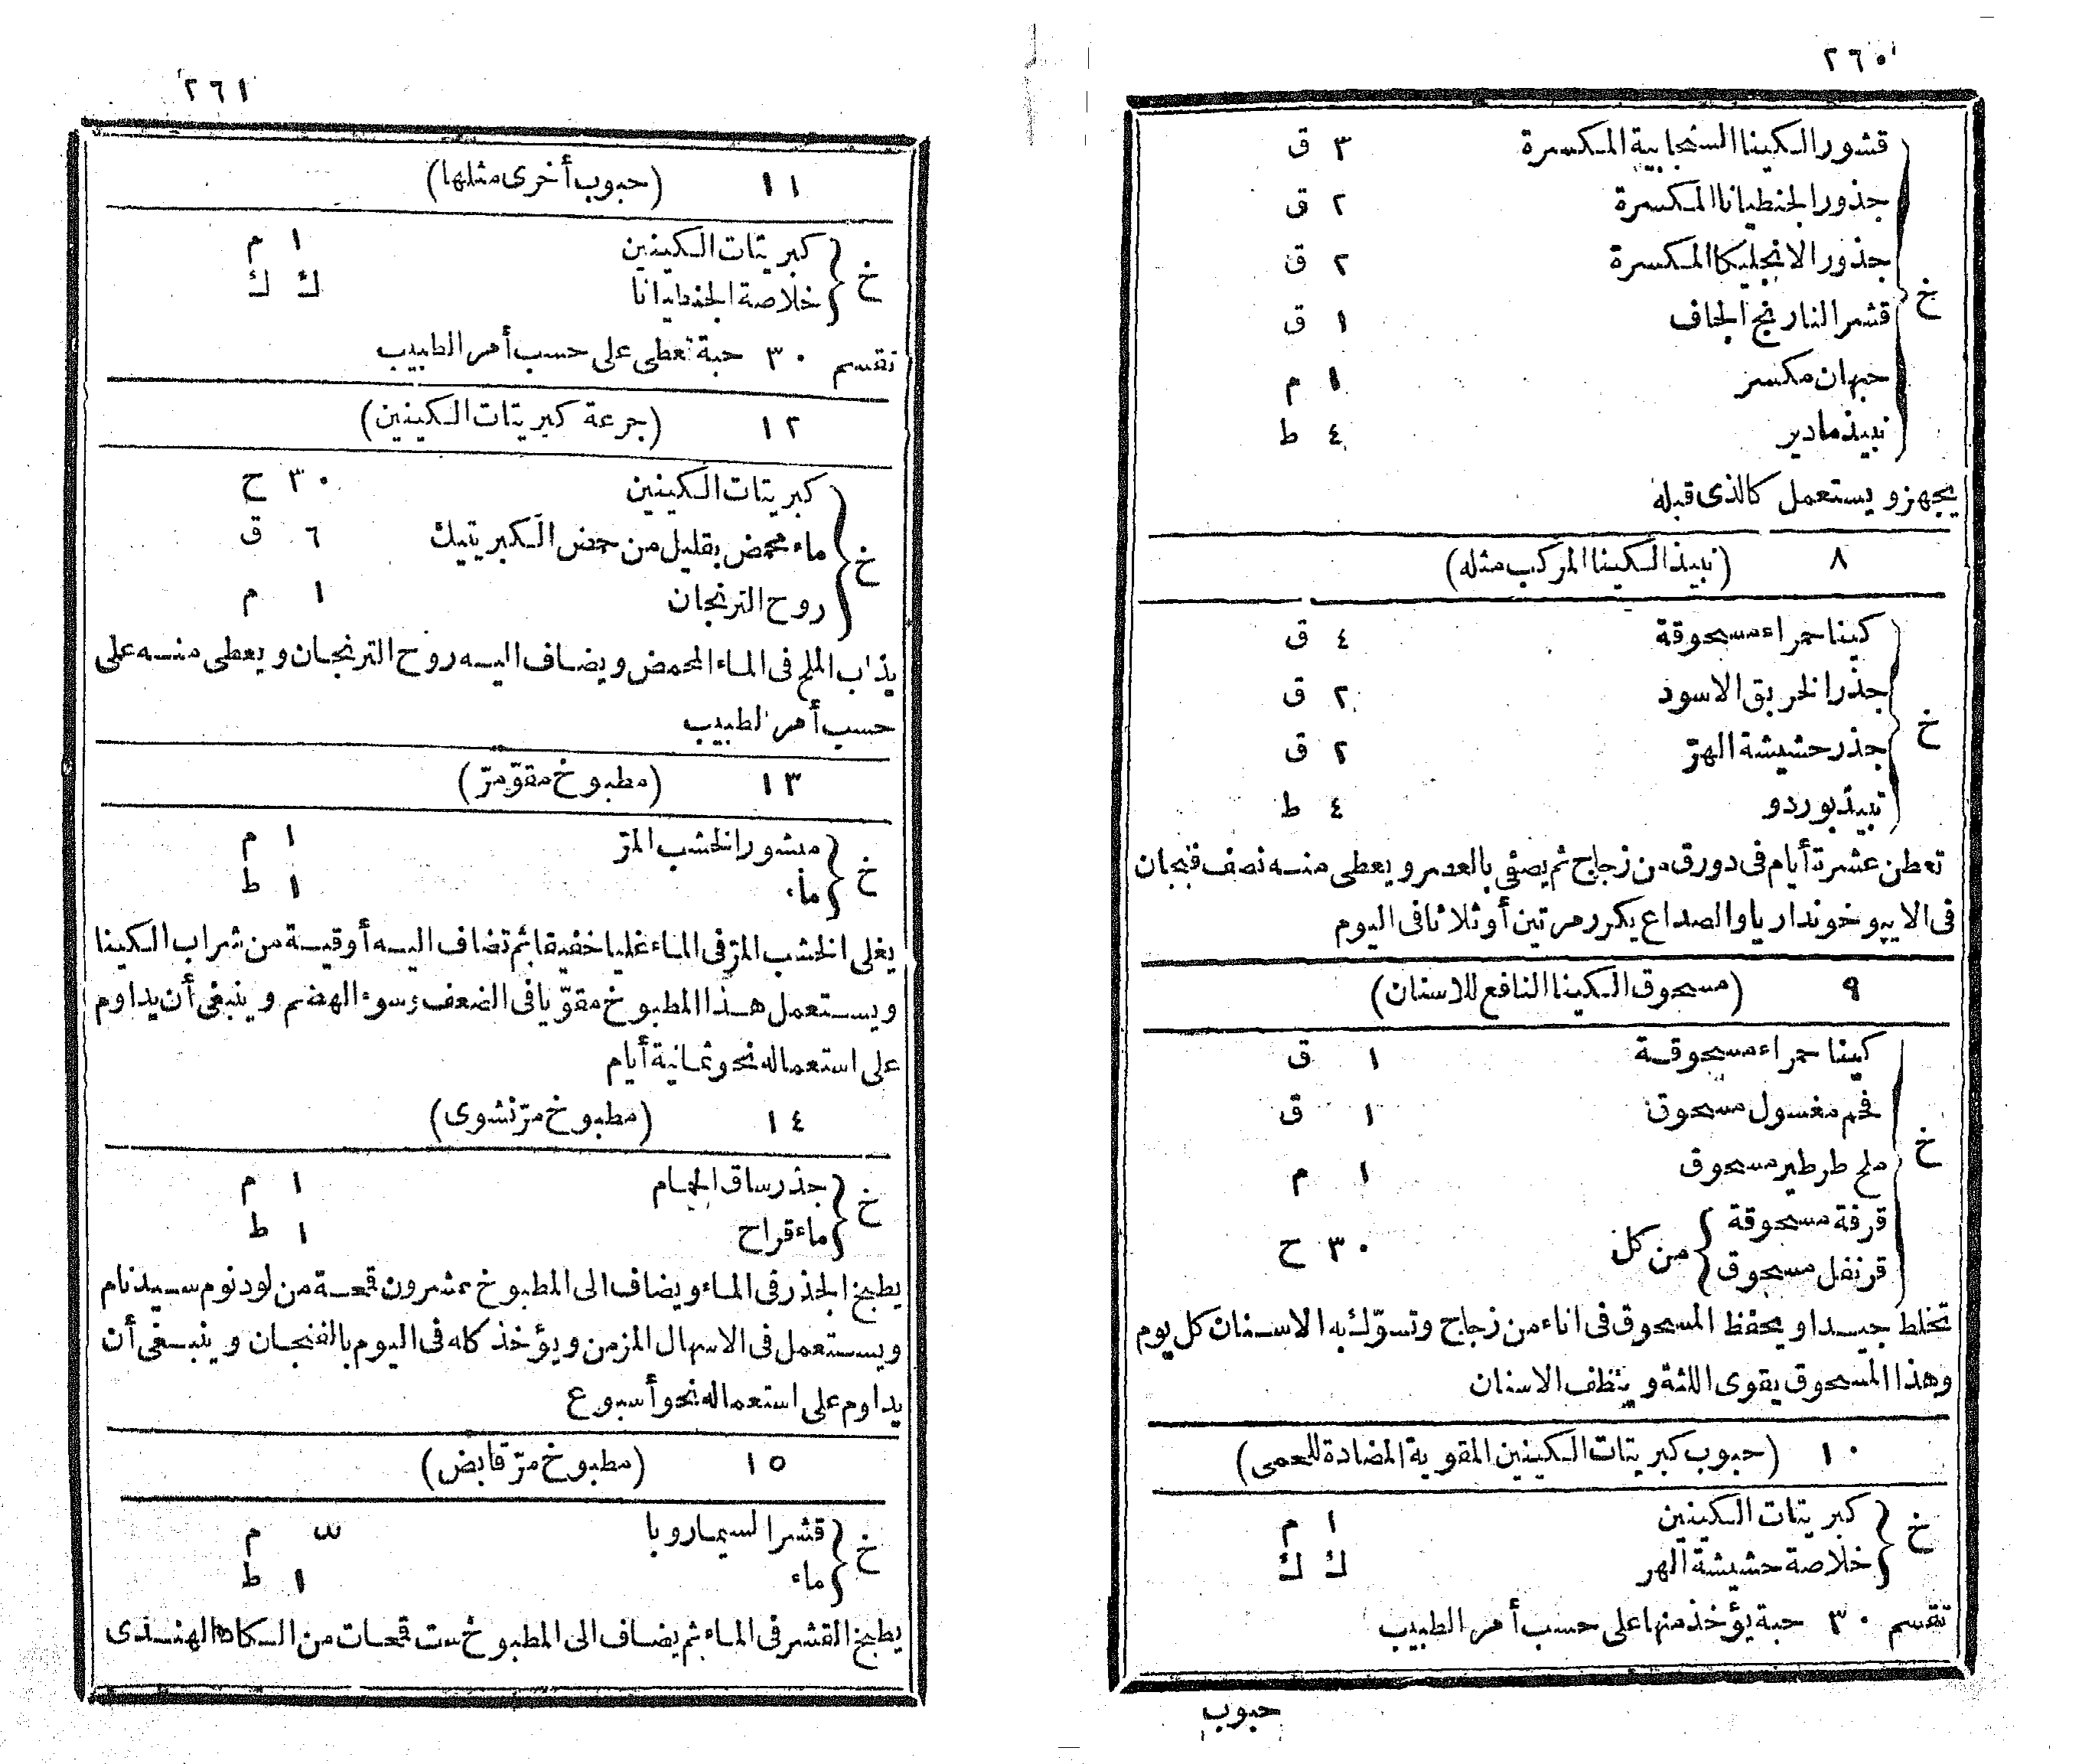 ٢٦٠
قشور الكينا السنجابية المكسرة ٣ ق
جذور الجنطيانا المكسرة ٢ ق
جذور الانجليكا المكسرة ٢ ق
خ
قشر النارنج الجاف ١ ق
حبهان مكسر ١ م
نبيذ مادير ٤ ط
يجهز ويستعمل كالذى قبله
٨ (نبيذ الكينا المركب مثله)
كينا حمراء مسحوقة ٤ ق
جذر الخربق الاسود ٢ ق
خ
جذر حشيشة الهرّ ٢ ق
نبيذ بوردو ٤ ط
تعطن عشرة أيام فى دورق من زجاج ثم يصفى بالعصر ويعطى منه نصف فنجان
فى الايپوخونداريا والصداع يكرر مرتين أو ثلاثا فى اليوم
٩ (مسحوق الكينا النافع للاسنان)
كينا حمراء مسحوقة ١ ق
فحم مغسول مسحوق ١ ق
خ
ملح طرطير مسحوق ١ م
قرفة مسحوقة
من كل ٣٠ ح
قرنفل مسحوق
تخلط جيدا ويحفظ المسحوق فى اناء من زجاج وتسوّك به الاسنان كل يوم
وهذا المسحوق يقوى اللثة وينظف الاسنان
١٠ (حبوب كبريتات الكينين المقوية المضادة للحمى)
كبريتات الكينين ١ م
خ
خلاصة حشيشة الهر ك ك
تقسم ٣٠ حبة يؤخذ منها على حسب أمر الطبيب
حبوب
٢٦١
١١ (حبوب أخرى مثلها)
كبريتات الكينين ١ م
خ
خلاصة الجنطيانا ك ك
تقسم ٣٠ حبة تعطى على حسب أمر الطبيب
١٢ (جرعة كبريتات الكينين)
كبريتات الكينين ٣٠ ح
خ
ماء محمض بقليل من حمض الكبريتيك ٦ ق
روح الترنجان ١ م
يذاب الملح فى الماء المحمض ويضاف اليه روح الترنجان ويعطى منه على
حسب أمر الطبيب
١٣ (مطبوخ مقوّ مرّ)
منشور الخشب المرّ ١ م
خ
ماء ١ ط
يغلى الخشب المرّ فى الماء غليا خفيفا ثم تضاف اليه أوقية من شراب الكينا
ويستعمل هذا المطبوخ مقوّيا فى الضعف وسوء الهضم وينبغى أن يداوم
على استعماله نحو ثمانية أيام
١٤ (مطبوخ مرّ نشوى)
جذر ساق الحمام ١ م
خ
ماء قراح ١ ط
يطبخ الجذر فى الماء ويضاف الى المطبوخ عشرون قمحة من لودنوم سيدنام
ويستعمل فى الاسهال المزمن ويؤخذ كله فى اليوم بالفنجان وينبغى أن
يداوم على استعماله نحو أسبوع
١٥ (مطبوخ مرّ قابض)
قشر السيماروبا م
خ
ماء ١ ط
يطبخ القشر فى الماء ثم يضاف الى المطبوخ ست قمحات من الكاد الهندى